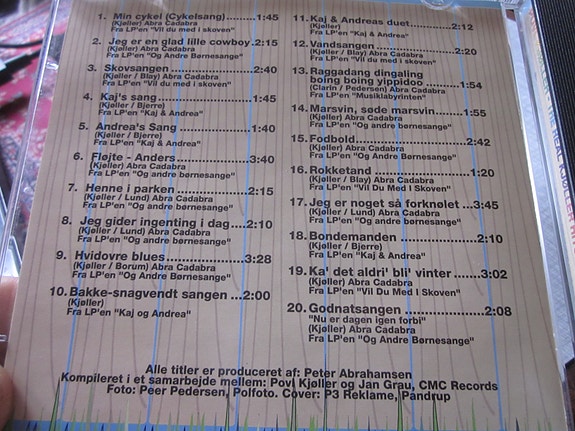 1. Min cykel (Cykelsang).........1:45
(Kjøller) Abra Cadabra
Fra LP'en "Vil du med i skoven"
2. Jeg er en glad lille cowboy.2:15
(Kjøller) Abra Cadabra
Fra LP'en "Og Andre Børnesange"
3. Skovsangen......................2:40
(Kjøller / Blay) Abra Cadabra
Fra LP'en "Vil du med i skoven"
4. Kaj's sang.........................1:45
(Kjøller / Bjerre)
Fra LP'en "Kaj & Andrea"
5. Andrea's Sang ...................1:40
(Kjøller / Bjerre)
Fra LP'en "Kaj & Andrea"
6. Fløjte - Anders....................3:40
(Kjøller) Abra Cadabra
Fra LP'en "Og andre børnesange"
7. Henne i parken ..................2:15
(Kjøller / Lund) Abra Cadabra
Fra LP'en "Og andre børnesange"
8. Jeg gider ingenting i dag...2:10
(Kjøller / Lund) Abra Cadabra
Fra LP'en "Og andre børnesange"
9. Hvidovre blues...................3:28
(Kjøller / Borum) Abra Cadabra
Fra LP'en "Og Andre Børnesange"
10. Bakke-snagvendt sangen ...2:00
(Kjøller)
Fra LP'en "Kaj og Andrea"
11. Kaj & Andreas duet.............2:12
(Kjøller)
Fra LP'en "Kaj & Andrea"
12. Vandsangen........................2:20
(Kjøller / Blay) Abra Cadabra
Fra LP'en "Vil du med i skoven"
13. Raggadang dingaling
boing boing yippidoo ...........1:54
(Clarin / Pedersen) Abra Cadabra
Fra LP'en "Musiklabyrinten"
14. Marsvin, søde marsvin.........1:55
(Kjøller) Abra Cadabra
Fra LP'en "Og andre børnesange"
15. Fodbold..............................2:42
(Kjøller) Abra Cadabra
Fra LP'en "Og andre børnesange"
16. Rokketand ..........................1:20
(Kjøller / Blay) Abra Cadabra
Fra LP'en "Vil Du Med I Skoven"
17. Jeg er noget så forknølet ...3:45
(Kjøller / Lund) Abra Cadabra
Fra LP'en "Og andre børnesange"
18. Bondemanden ....................2:10
(Kjøller / Bjerre)
Fra LP'en "Kaj & Andrea"
19. Ka' det aldri' bli' vinter .......3:02
(Kjøller) Abra Cadabra
Fra LP'en "Vil Du Med I Skoven"
20. Godnatsangen.....................2:08
"Nu er dagen igen forbi"
(Kjøller) Abra Cadabra
Fra LP'en "Og Andre Børnesange"
Alle titler er produceret af: Peter Abrahamsen
Kompileret i et samarbejde mellem: Povl Kjøller og Jan Grau, CMC Records
Foto: Peer Pedersen, Polfoto. Cover: P3 Reklame, Pandrup